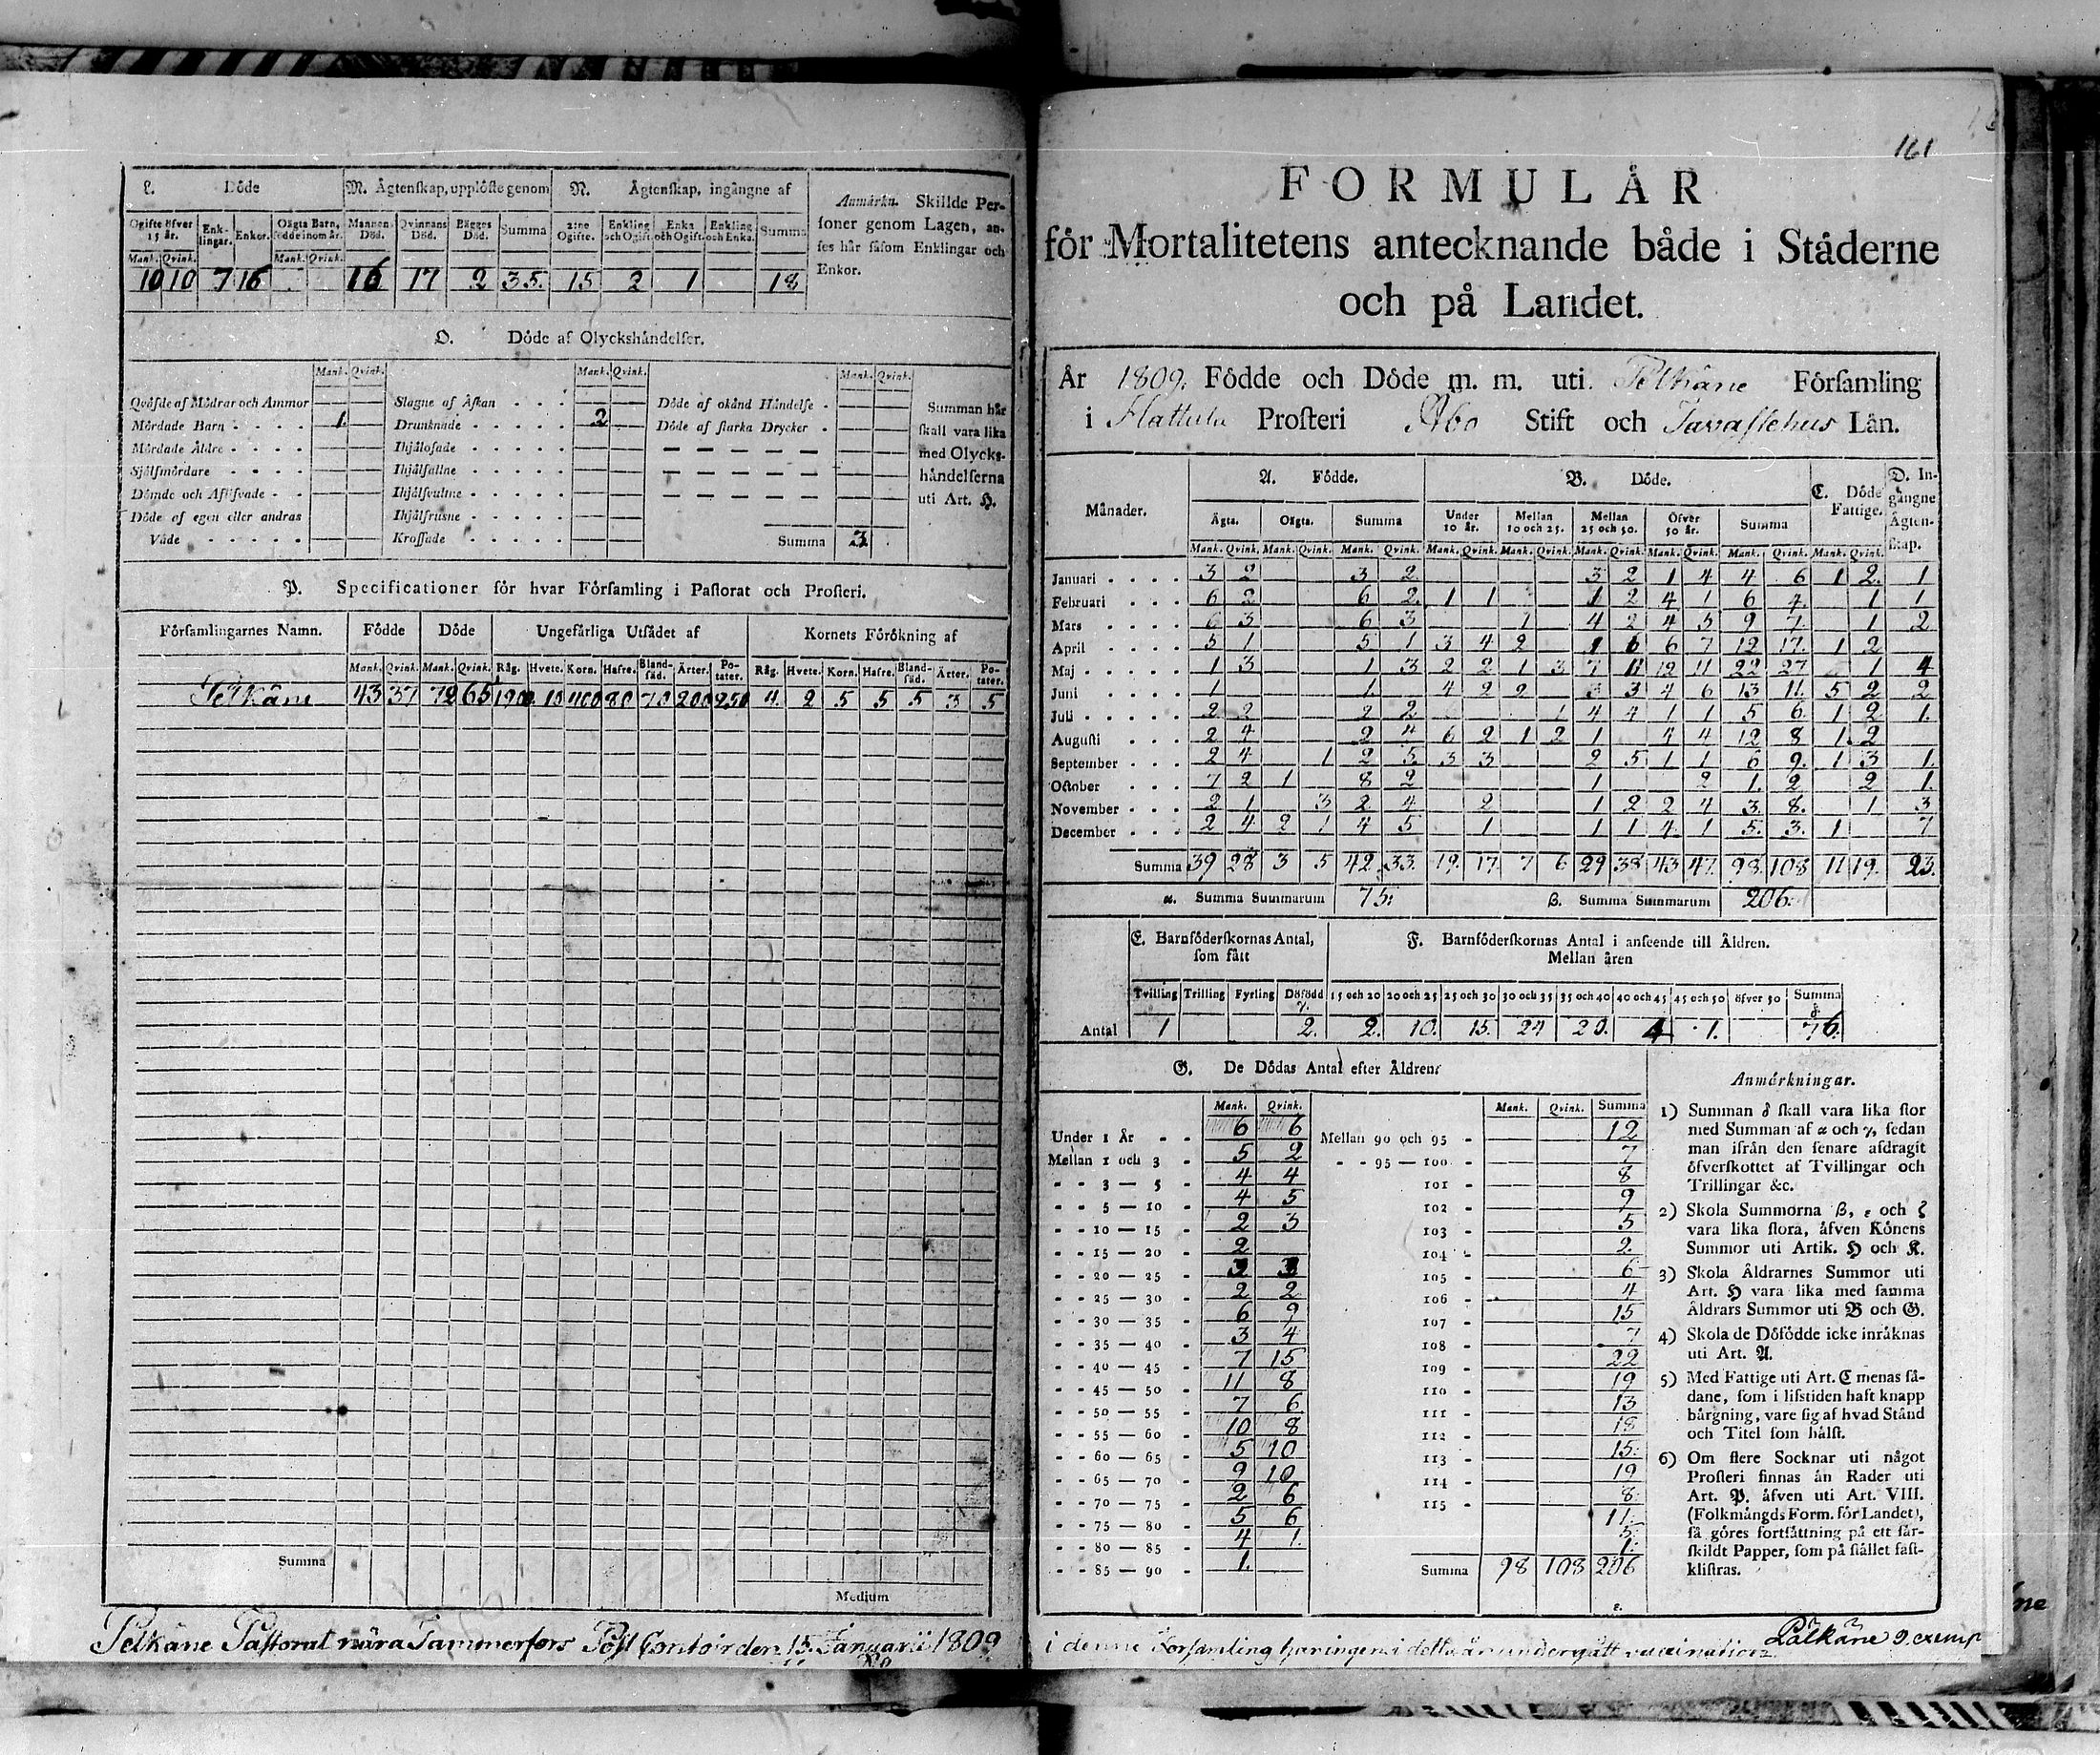 L. Döde
M. Ägtenskap, upplöste genom
N. Ägtenskap, ingångne af
Anmärkn. Skillde Personer genom Lagen, anses här såsom Enklingar och Enkor.
Ogifte öfver 15 år. Enklingar. Enkor. Oägta Barn, födde inom år. Mannens Död. Qvinnans Död. Bägges Död. Summa 2:ne Ogifte. Enkling och Ogift. Enka och Ogift. Enkling och Enka. Summa
Mank. Qvink. Mank. Qvink.
10 10 7 16 16 17 2 35. 15 2 1 18
O. Döde af Olyckshändelser.
Mank. Qvink. Mank. Qvink. Mank. Qvink.
Qväfde af Mödrar och Ammor 1. Slagne af Åskan Döde af okänd Händelse
Mördade Barn Drunknade 2 Döde af starka Drycker
Mördade Äldre Ihjälosade
Själfmördare Ihjälfallne
Dömde och Aflifvade Ihjälsvultne
Döde af egen eller andras Våde Ihjälfrusne
Krossade Summa 3
Summan här skall vara lika med Olyckshändelserna uti Art. H.
P. Specificationer för hvar Församling i Pastorat och Prosteri.
Församlingarnes Namn. Födde Döde Ungefärliga Utsädet af Kornets Förökning af
Mank. Qvink. Mank. Qvink. Råg. Hvete. Korn. Hafre. Blandsäd. Ärter. Potater. Råg. Hvete. Korn. Hafre. Blandsäd. Ärter. Potater.
Pelkäne 43 37 72 65 1900. 10 400 80 70 200 250 4. 2 5 5 5 3 5
Summa
Medium
Pelkäne Pastorat nära Tammerfors Post Contoir den 15 Januarii 1809
161
FORMULÄR
för Mortalitetens antecknande både i Städerne
och på Landet.
År 1809. Födde och Döde m. m. uti Pelkäne Församling
i Hattula Prosteri Åbo Stift och Tavastehus Län.
Månader. A. Födde. B. Döde. C. Döde Fattige. D. Ingångne Ägtenskap.
Ägta. Oägta. Summa Under 10 år. Mellan 10 och 25. Mellan 25 och 50. Öfver 50 år. Summa
Mank. Qvink. Mank. Qvink. Mank. Qvink. Mank. Qvink. Mank. Qvink. Mank. Qvink. Mank. Qvink. Mank. Qvink. Mank. Qvink.
Januari 3 2 3 2. 3 2 1 4 4 6 1 2. 1
Februari 6 2 6 2. 1 1 1 2 4 1 6 4. 1 1
Mars 6 3 6 3 1 4 2 4 5 9 7. 1 2
April 5 1 5 1 3 4 2 1 6 6 7 12 17. 1 2
Maj 1 3 1 3 2 2 1 3 7 11 12 11 22 27 1 4
Juni 1 1. 4 2 2 3 3 4 6 13 11. 5 2 2
Juli 2 2 2 2 1 4 4 1 1 5 6. 1 2 1.
Augusti 2 4 2 4 6 2 1 2 1 4 4 12 8 1. 2
September 2 4 1 2 5. 3 3 2 5 1 1 6 9. 1 3 1.
October 7 2 1 8 2 1 2 1. 2 2 1.
November 2 1 3 2 4 2 1 2 2 4 3. 8. 1 3
December 2 4 2 1 4 5 1 1 1 4. 1 5. 3. 1 7
Summa 39 28 3 5 42. 33. 19. 17. 7 6 29 38 43 47. 98. 108 11 19. 23.
α. Summa Summarum 75: β. Summa Summarum 206:
E. Barnföderskornas Antal, som fått
F. Barnföderskornas Antal i anseende till Åldren.
Mellan åren
Tvilling Trilling Fyrling Döfödd 15 och 20 20 och 25 25 och 30 30 och 35 35 och 40 40 och 45 45 och 50 öfver 50 Summa
γ. δ
Antal 1 2. 2. 10. 15. 24 20. 4 1. 76.
G. De Dödas Antal efter Åldren:
Mank. Qvink. Mank. Qvink. Summa
Under 1 År 6 6 Mellan 90 och 95 12
Mellan 1 och 3 5 2 95 — 100 7
3 — 5 4 4 101 8
5 — 10 4 5 102 9
10 — 15 2 3 103 5
15 — 20 2 104 2.
20 — 25 3 3 105 6
25 — 30 2 2 106 4
30 — 35 6 9 107 15
35 — 40 3 4 108 7
40 — 45 7 15 109 22
45 — 50 11 8 110 19
50 — 55 7 6 111 13
55 — 60 10 8 112 18
60 — 65 5 10 113 15:
65 — 70 9 10 114 19
70 — 75 2 6 115 8:
75 — 80 5 6 11:
80 — 85 4 1. 5:
85 — 90 1. 1.
Summa 98 108 206
ε.
Anmärkningar.
1) Summan δ skall vara lika stor
med Summan af α och γ, sedan
man ifrån den senare afdragit
öfverskottet af Tvillingar och
Trillingar &c.
2) Skola Summorna β, ε och ζ
vara lika stora, äfven Könens
Summor uti Artik. H och K.
3) Skola Åldrarnes Summor uti
Art. H vara lika med samma
Åldrars Summor uti B och G.
4) Skola de Döfödde icke inräknas
uti Art. A.
5) Med Fattige uti Art. C menas sådane,
som i lifstiden haft knapp
bärgning, vare sig af hvad Stånd
och Titel som hälst.
6) Om flere Socknar uti något
Prosteri finnas än Rader uti
Art. P. äfven uti Art. VIII.
(Folkmängds Form. för Landet),
så göres fortsättning på ett särskildt
Papper, som på stället fastklistras.
i denne Församling har ingen i detta år undergått vaccination
Pälkäne 9. exemp